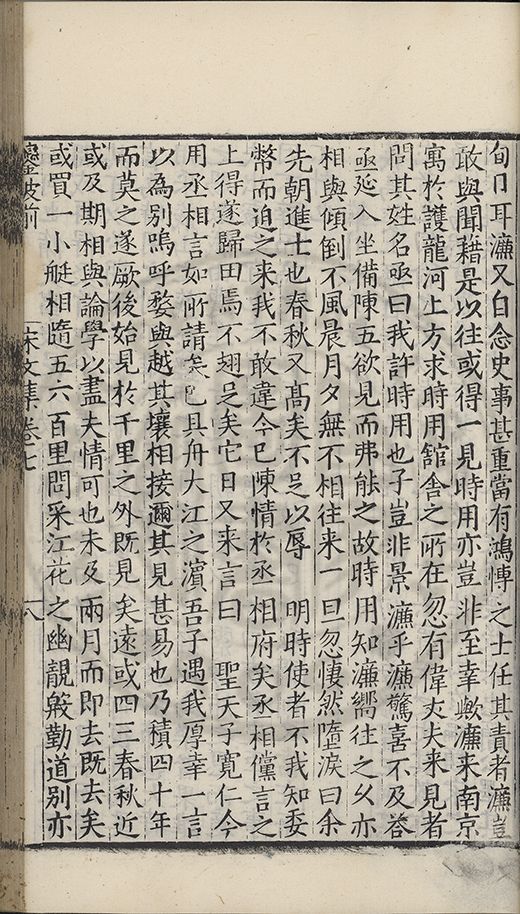 旬日耳濂又自念史事甚重當有鴻愽之士任其責者濂豈
敢與聞藉是以往或得一見時用亦豈非至幸歟濂来南京
寓於護龍河上方求時用舘舎之所在忽有偉丈夫来見者
問其姓名亟曰我許時用也子豈非景濂乎濂驚喜不及荅
亟延入坐備陳五欲見而弗能之故時用知濂嚮往之乆亦
相與傾倒不風晨月夕無不相往来一旦忽悽然墮淚曰余
先朝進士也春秋又髙矣不足以辱 明時使者不我知委
幣而迫之来我不敢違今已陳情於丞相府矣丞相儻言之
上得遂歸田焉不翅足矣它日又来言曰 聖天子寛仁今
用丞相言如所請矣已具舟大江之濵吾子遇我厚幸一言
以為别嗚呼婺與越其壤相接邇其見甚易也乃積四十年
而莫之遂厥後始見於千里之外既見矣遠或四三春秋近
或及期相與論學以盡夫情可也未及兩月而即去既去矣
或買一小艇相隨五六百里問采江花之幽靚毃勤道别亦
鑾坡前 宋文集卷七 八